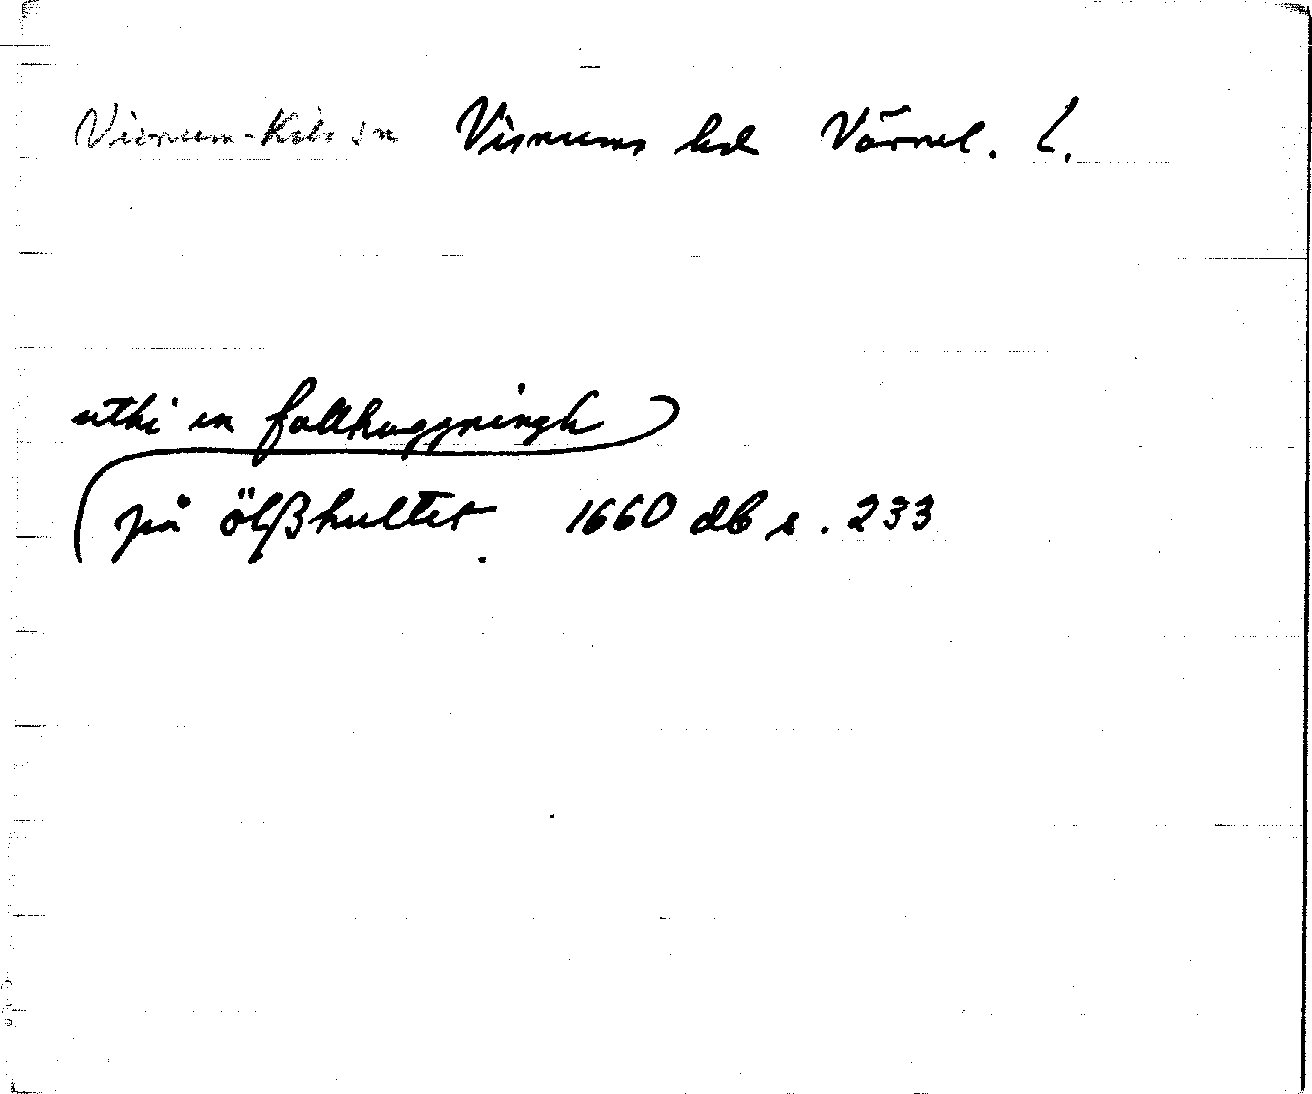 Visnum-Kils sn Visnums hd Värml. l.
uthi en fallhuggningh
på ölßhultet 1660 db s. 233